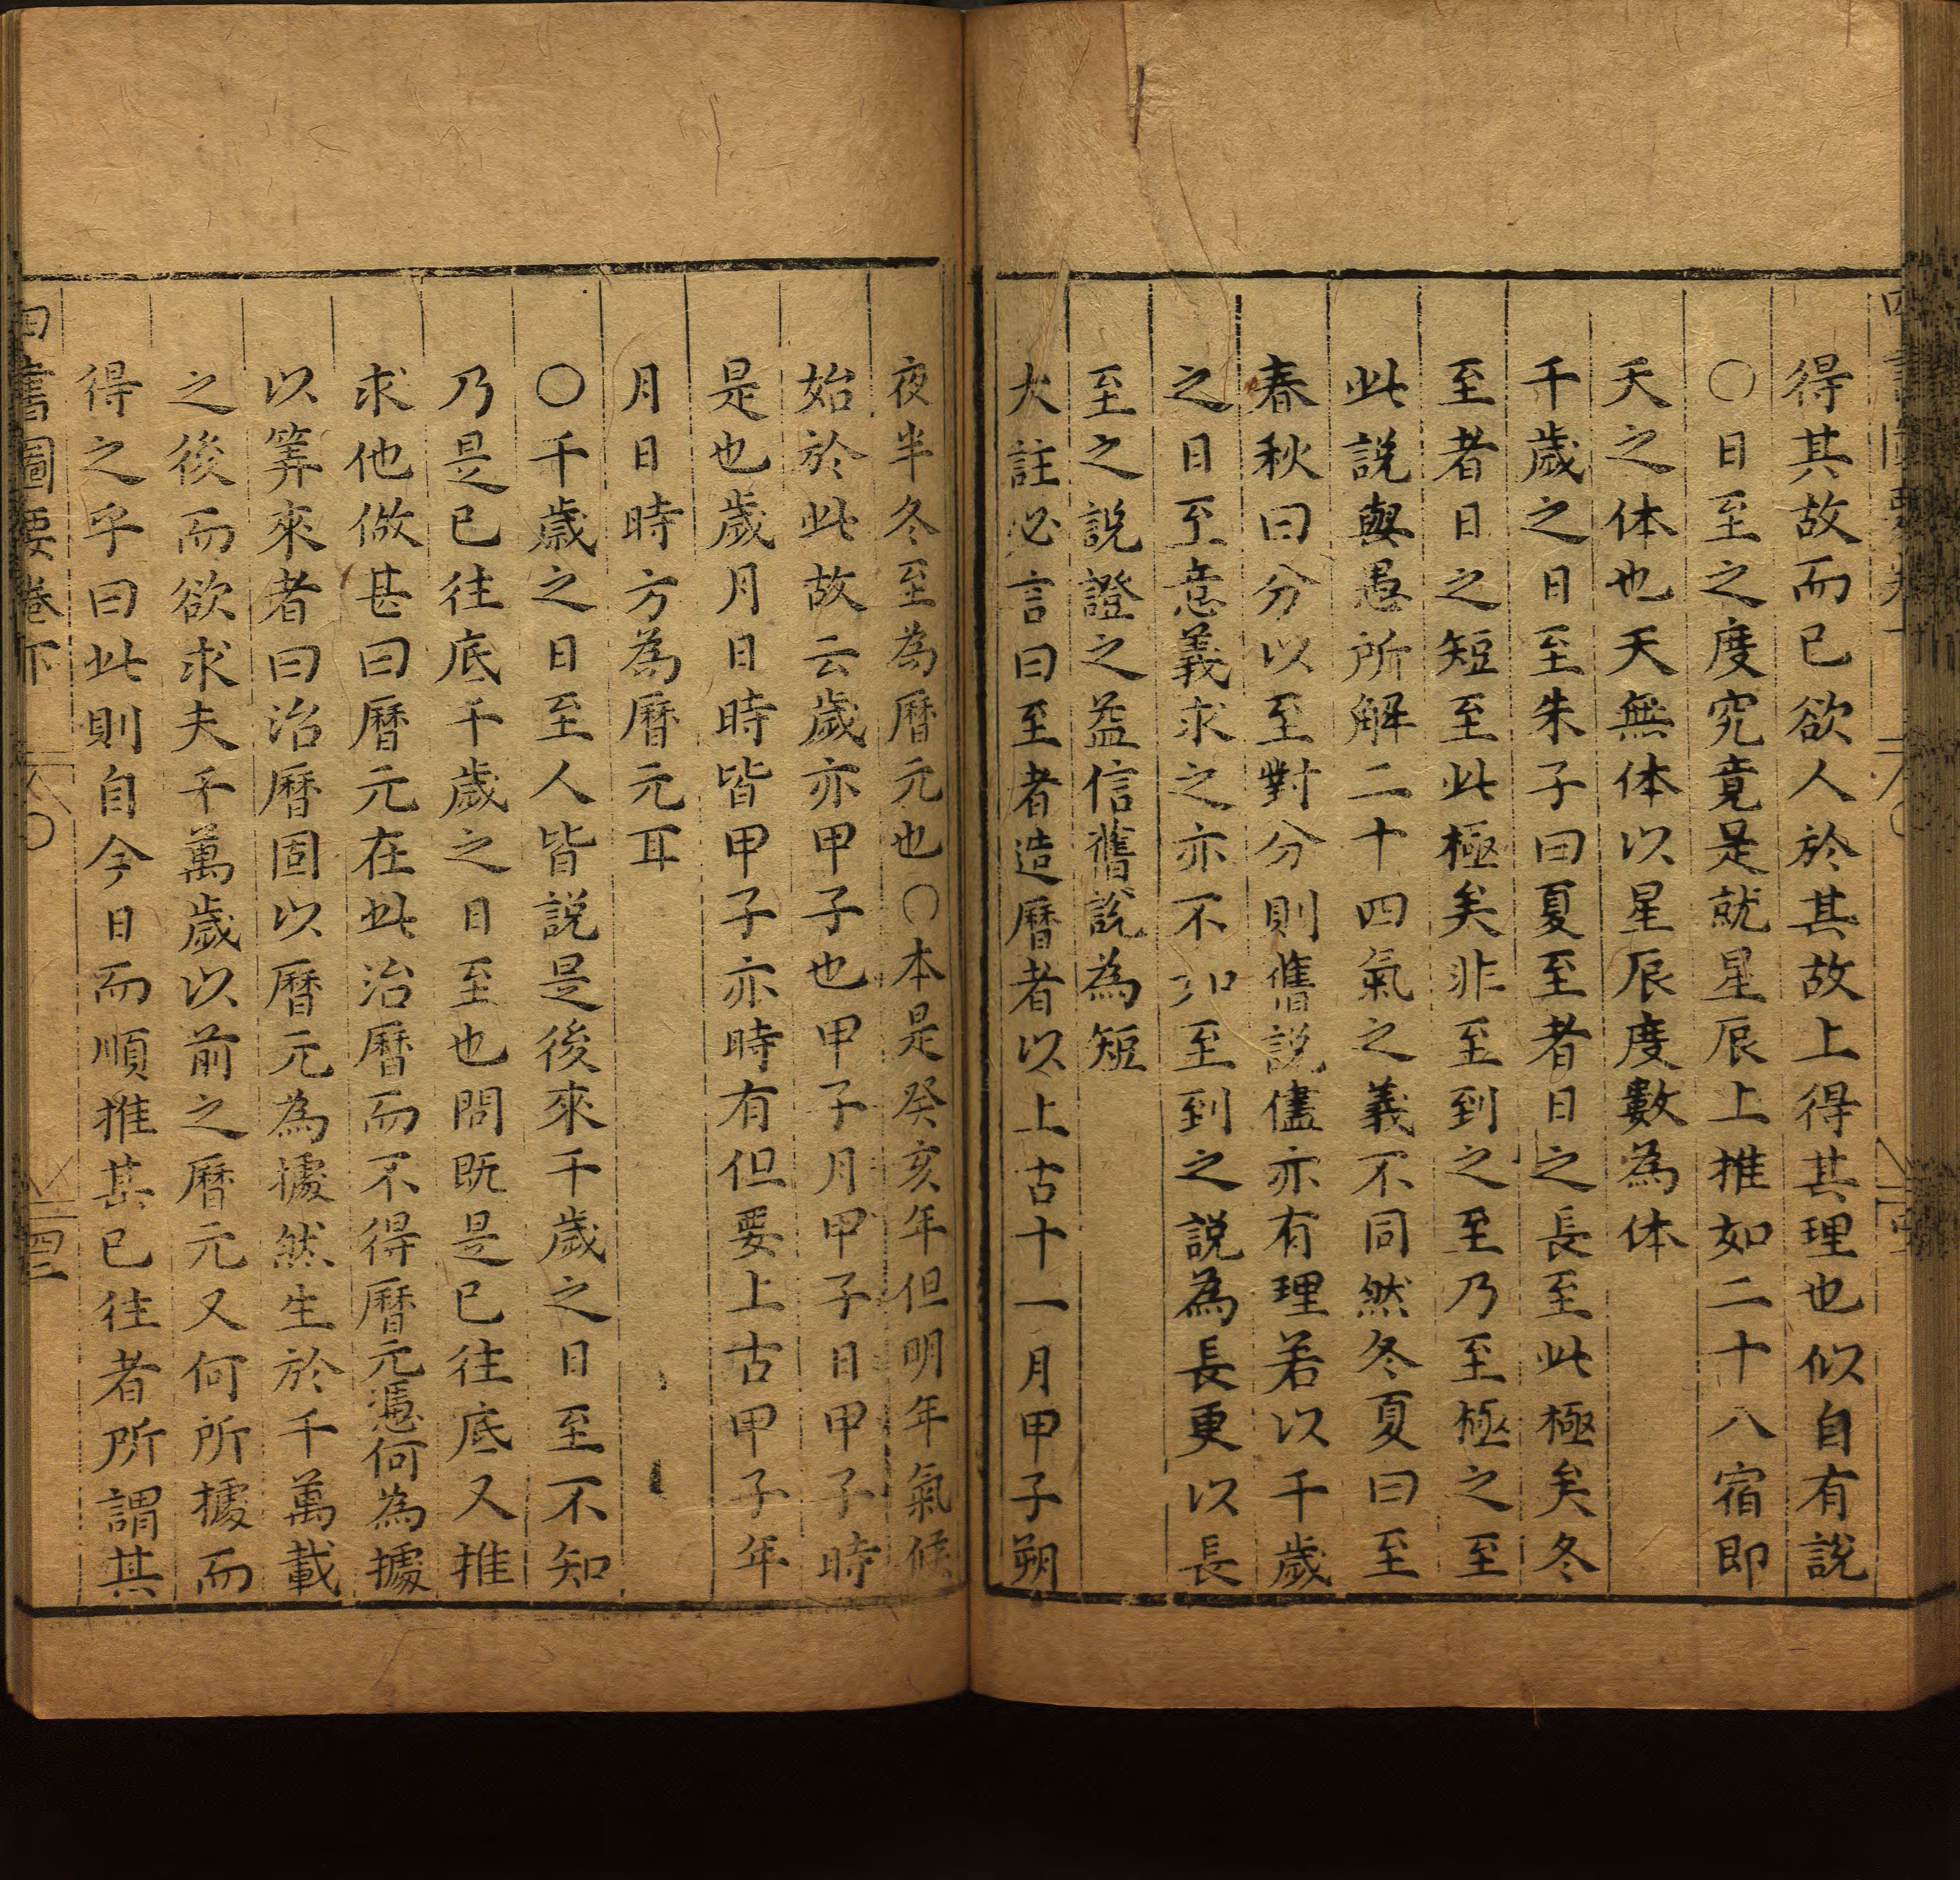 得其故而已欲人於其故上得其理也似自有説
○日至之度究竟是就星辰上推如二十八宿即
天之体也天無体以星辰度數為体
千歲之日至朱子曰夏至者日之長至此極矣冬
至者日之短至此極矣非至到之至乃至極之至
此説與愚所解二十四氣之義不同然冬夏曰至
春秋曰分以至對分則舊説儘亦有理若以千歲
之日至意義求之亦不如至到之説為長更以長
至之説證之益信舊説為短
大註必言曰至者造曆者以上古十一月甲子朔
夜半冬至為曆元也○本是癸亥年但明年氣候
始於此故云歲亦甲子也甲子月甲子日甲子時
是也歲月日時皆甲子亦時有但要上古甲子年
月日時方為曆元耳
○千歲之日至人皆説是後來千歲之日至不知
乃是已往底千歲之日至也問既是已往底又推
求他做甚曰曆元在此治曆而不得曆元憑何為據
以筭來者曰治曆固以曆元為據然生於千萬載
之後而欲求夫千萬歲以前之曆元又何所據而
得之乎曰此則自今日而順推其已往者所謂其
四書圖要卷下